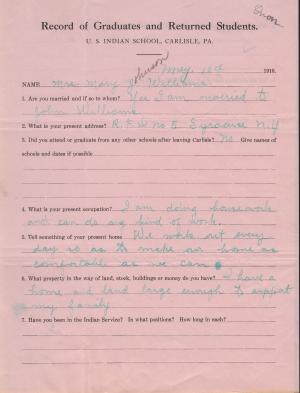 Snow
Record of Graduates and Returned Students.
U. S. INDIAN SCHOOL, CARLISLE, PA.
Johnson
May, 1910.
NAME Mrs. Mary Williams
1. Are you married and if so to whom? Yes I am married to
John Williams
2. What is your present address? R.F.D No 5 Syracuse N.Y
3. Did you attend or graduate from any other schools after leaving Carlisle? No Give names of
schools and dates if possible
4. What is your present occupation? I am doing housework
and can do any kind of work.
5. Tell something of your present home We work out every
day so as to make our home as
comfortable as we can
6. What property in the way of land, stock, buildings or money do you have? I have a
home and land large enough to support
my family
7. Have you been in the Indian Service? In what positions? How long in each?